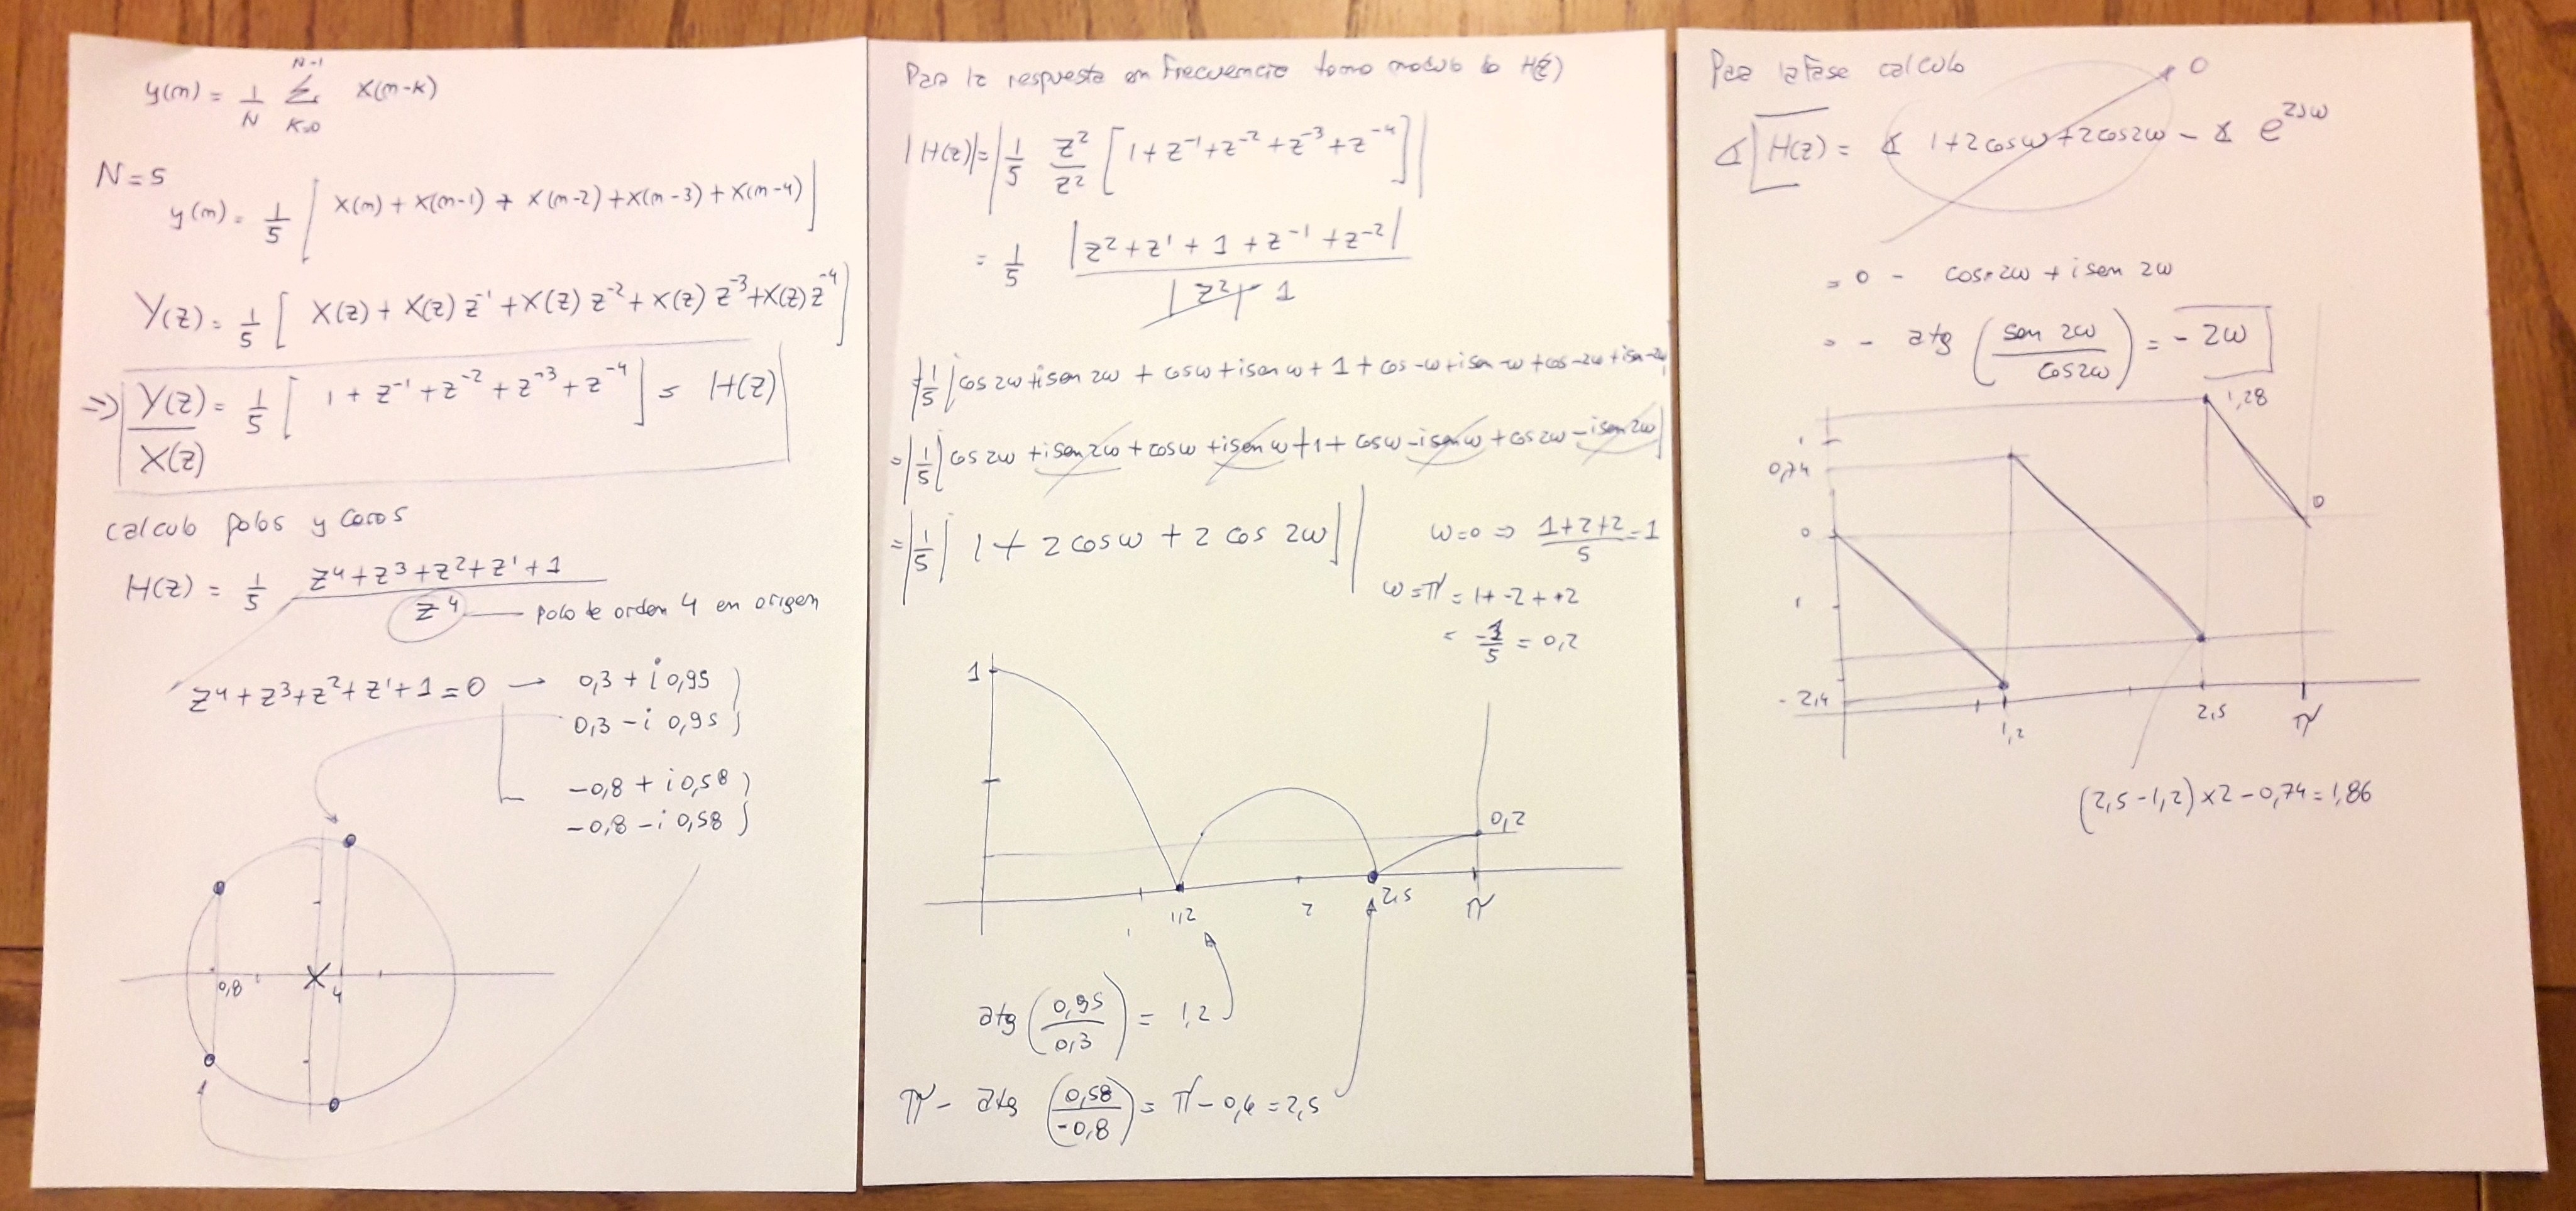 y(n) = 1/N Σ_{K=0}^{N-1} x(n-k)
N=5
y(n) = 1/5 [ x(n) + x(n-1) + x(n-2) + x(n-3) + x(n-4) ]
Y(z) = 1/5 [ X(z) + X(z) z^-1 + X(z) z^-2 + X(z) z^-3 + X(z) z^-4 ]
=> Y(z)/X(z) = 1/5 [ 1 + z^-1 + z^-2 + z^-3 + z^-4 ] = H(z)
calculo polos y ceros
H(z) = 1/5 (z^4 + z^3 + z^2 + z^1 + 1)/z^4 polo de orden 4 en origen
z^4 + z^3 + z^2 + z^1 + 1 = 0 → 0,3 + i 0,95
0,3 - i 0,95
-0,8 + i 0,58
-0,8 - i 0,58
0,8
4
Para la respuesta en Frecuencia tomo modulo de H(z)
|H(z)| = | 1/5 z^2/z^2 [ 1 + z^-1 + z^-2 + z^-3 + z^-4 ] |
= 1/5 |z^2 + z^1 + 1 + z^-1 + z^-2| / |z^2| 1
= | 1/5 [ cos 2ω + i sen 2ω + cosω + i sen ω + 1 + cos -ω + i sen -ω + cos -2ω + i sen -2ω
= | 1/5 [ cos 2ω + i sen 2ω + cosω + i sen ω + 1 + cosω - i sen ω + cos 2ω - i sen 2ω ]
= | 1/5 [ 1 + 2 cosω + 2 cos 2ω ] |
ω=0 => (1+2+2)/5 = 1
ω=π = 1 + -2 + +2
= -1/5 = 0,2
1
0,2
1
1,2
2
2,5
π
atg (0,95/0,3) = 1,2
π - atg (0,58/-0,8) = π - 0,6 = 2,5
Para la Fase calculo
∡ H(z) = ∡ 1 + 2 cosω + 2 cos2ω - ∡ e^{2jω}
0
= 0 - cos 2ω + i sen 2ω
= - atg (sen 2ω / cos 2ω) = -2ω
1,28
1
0,74
0
0
1
-2,4
1,2
2,5
π
(2,5 - 1,2) x 2 - 0,74 = 1,86